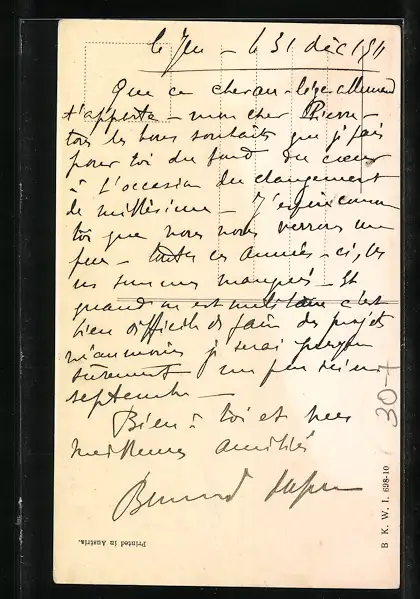 le 31 déc 1911
Que ce cheval-léger allemand
t'apporte - mon cher Pierre -
tous les bons souhaits que je fais
pour toi du fond du cœur
à l'occasion du changement
de millésime - J'espère comme
toi que nous nous verrons un
peu - toutes ces années-ci, les
- Et
quand on est militaire c'est
bien difficile de faire des projets
néanmoins je serai
sûrement un peu ici en
septembre -
Bien à toi et mes
meilleures amitiés
Bernard
30-
B. K. W. I. 698-10
Printed in Austria.